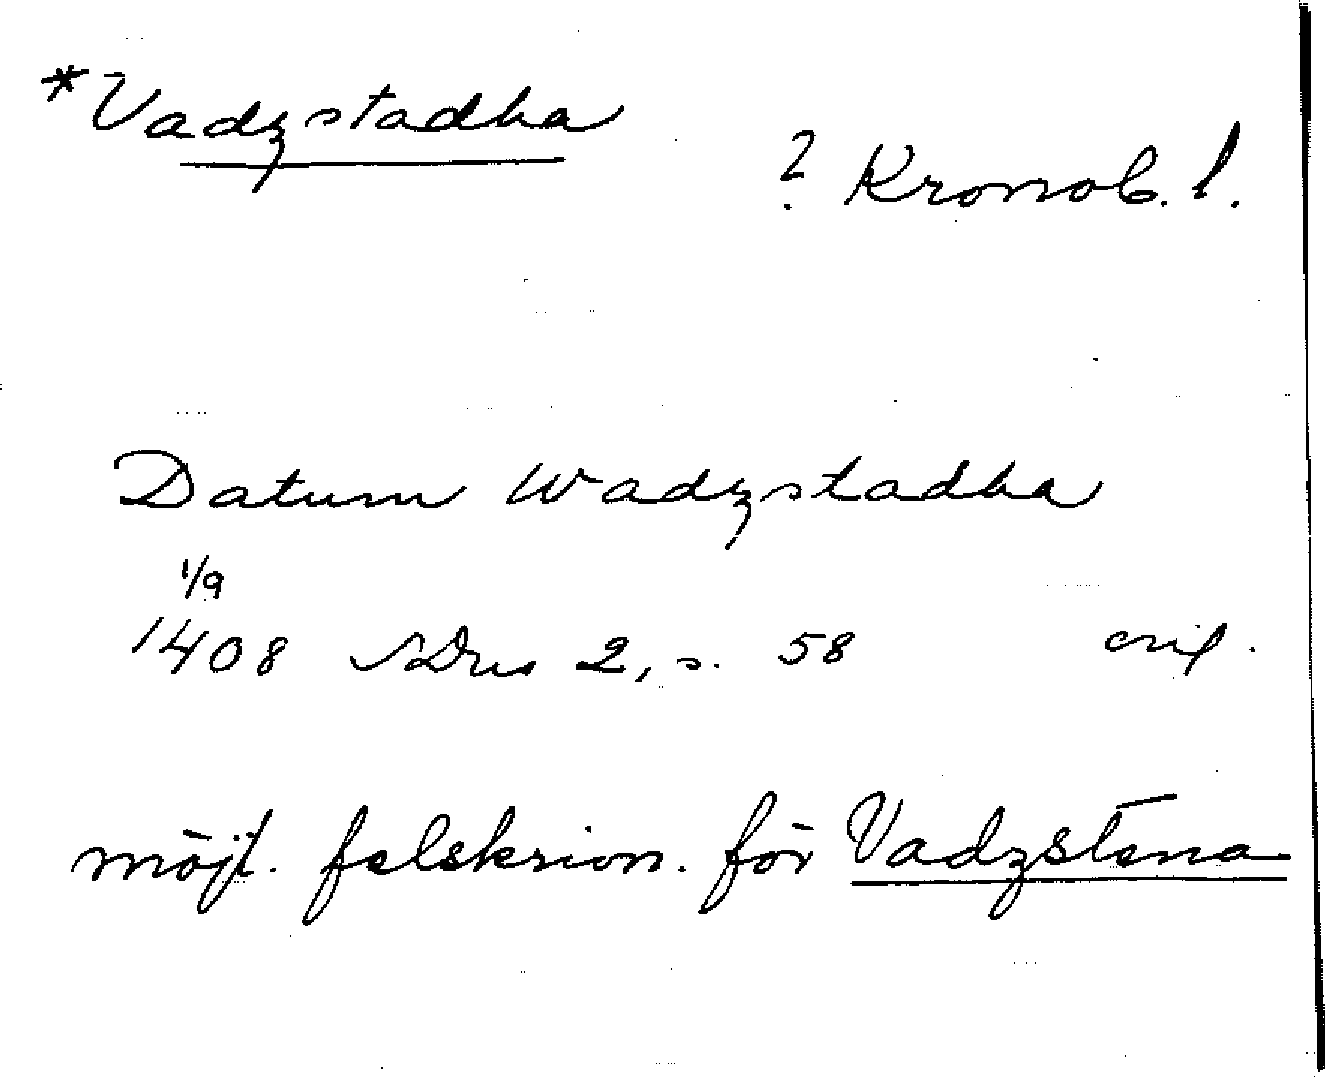 *Vadzstadha
? Kronob. l.
Datum Wadzstadha
1/9
1408 SDns 2, s. 58 orig.
möjl. felskrivn. för Vadzstena